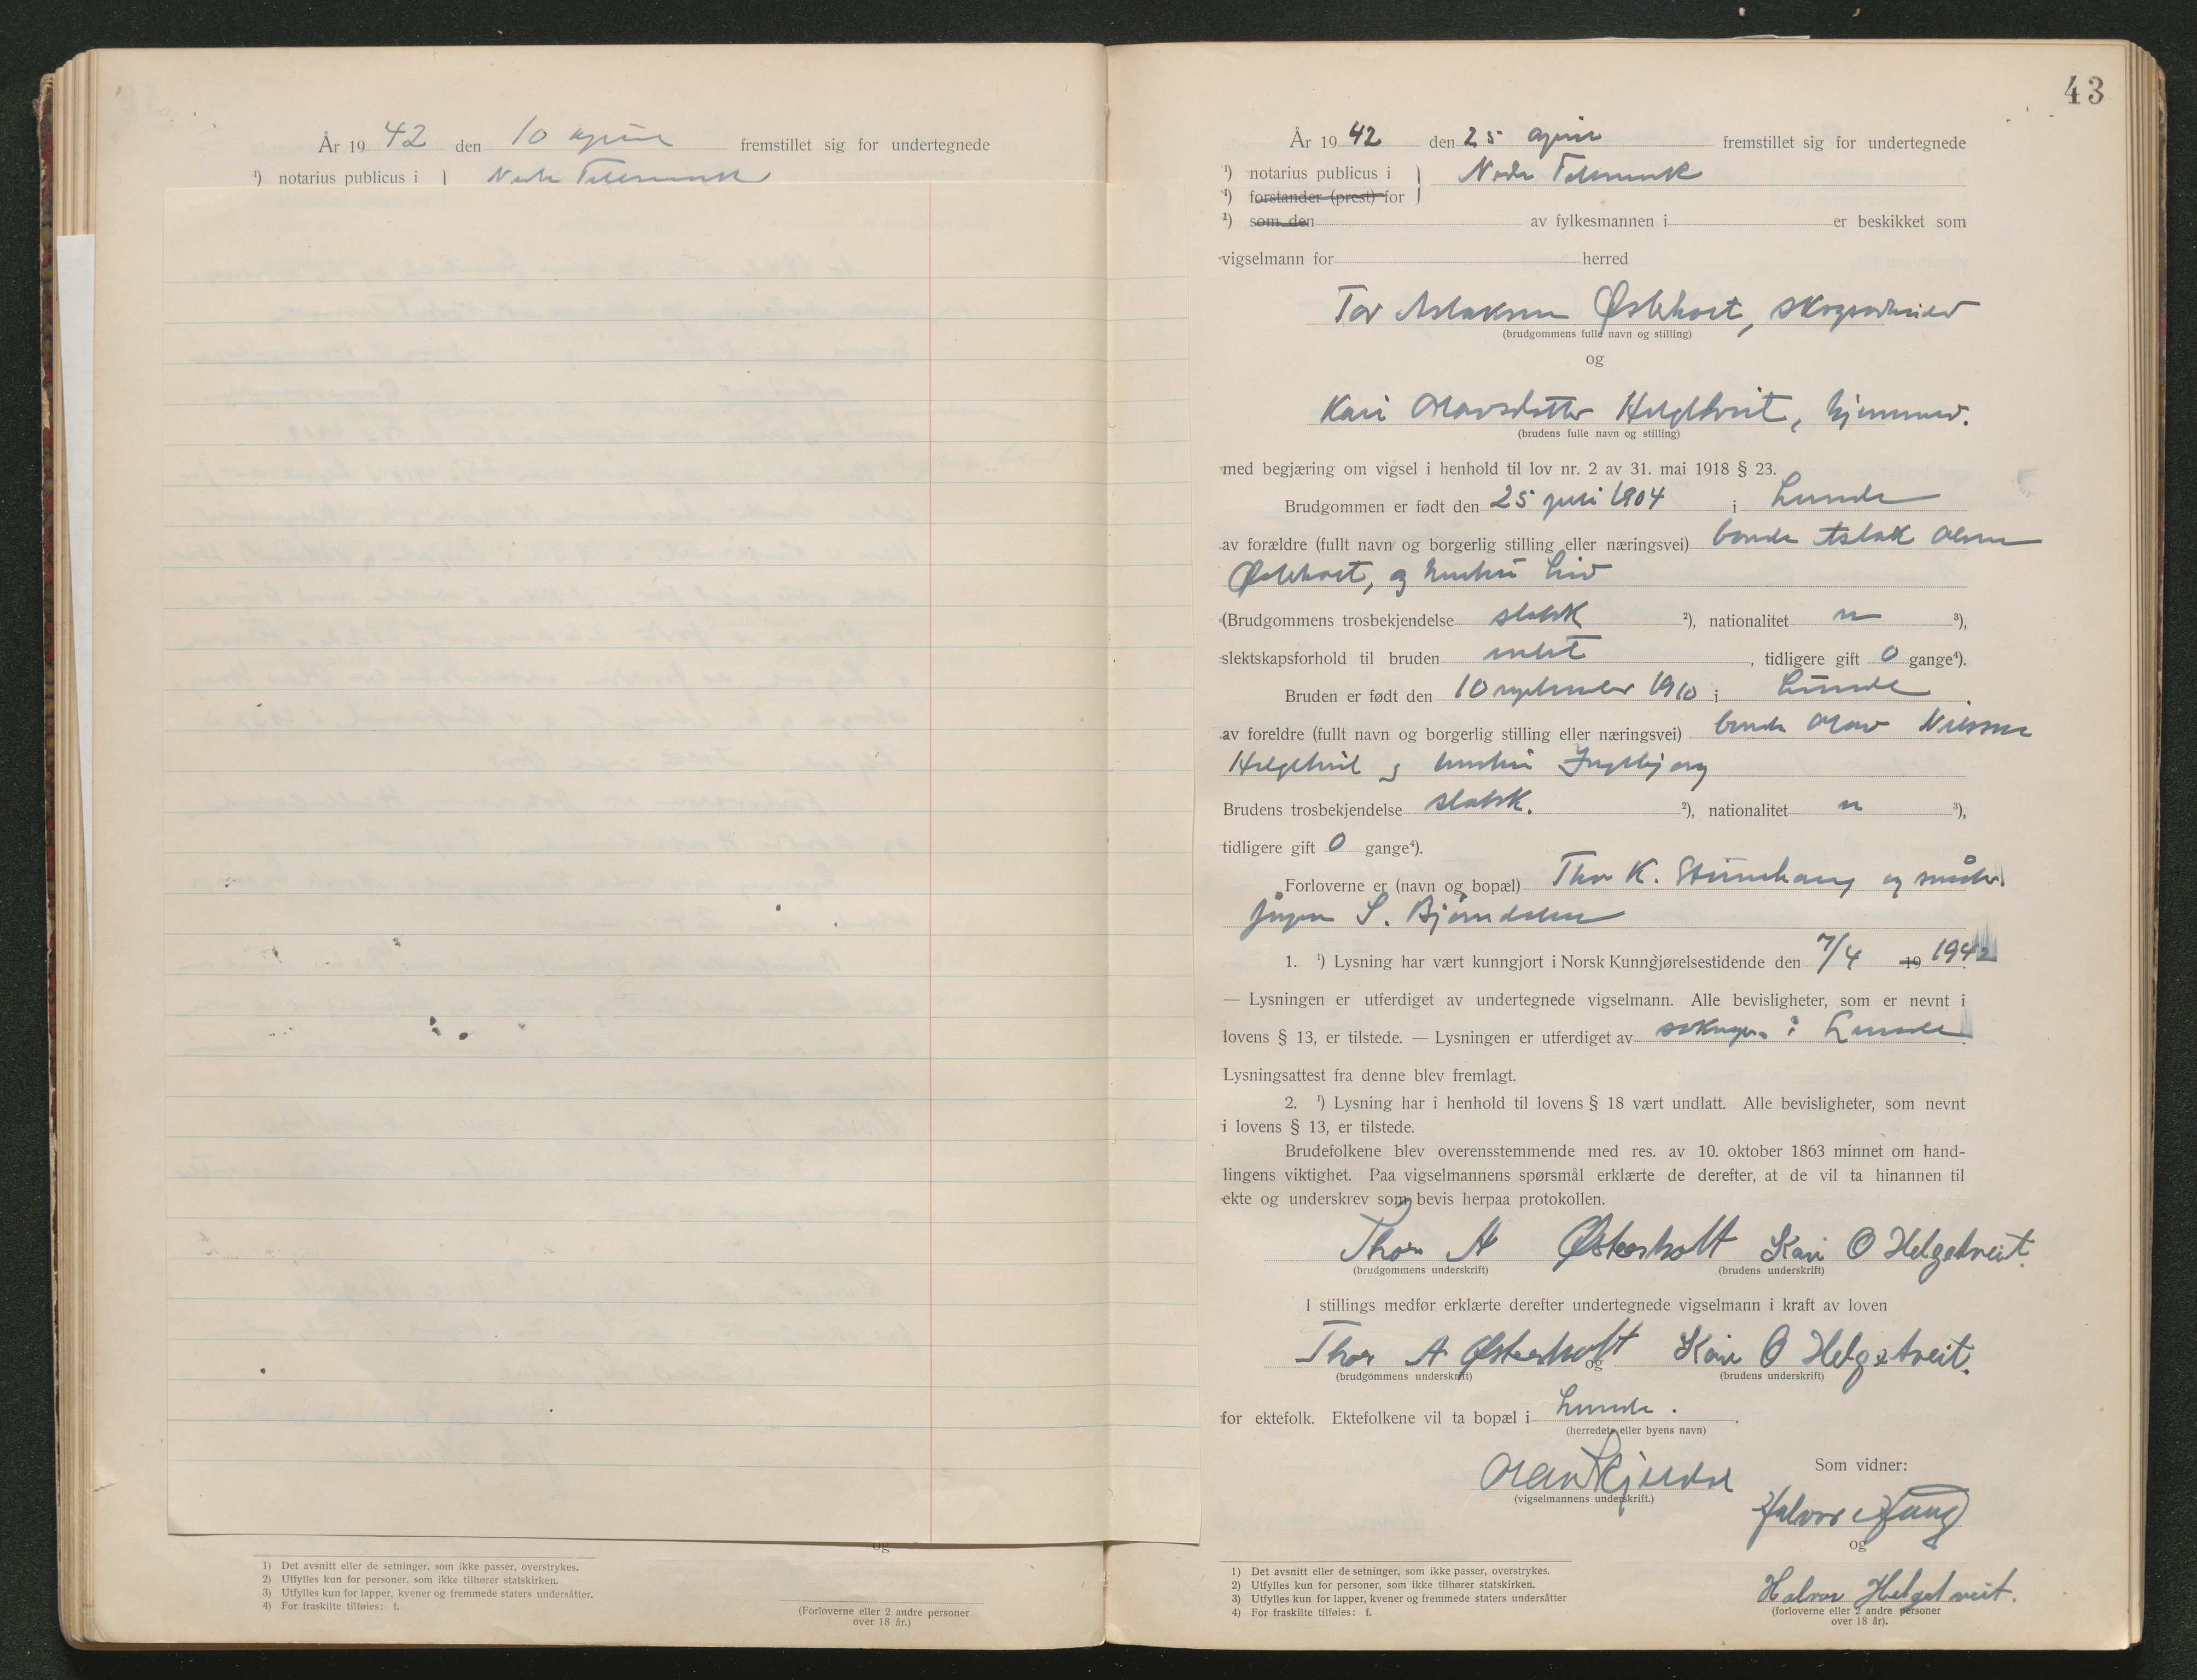 År 19 42 den 10 april fremstillet sig for undertegnede
¹) notarius publicus i } Nedre Telemark
og
1) Det avsnitt eller de setninger, som ikke passer, overstrykes.
2) Utfylles kun for personer, som ikke tilhører statskirken.
3) Utfylles kun for lapper, kvener og fremmede staters undersåtter.
4) For fraskilte tilføies: f.
(Forloverne eller 2 andre personer
over 18 år.)
43
År 19 42 den 25 april fremstillet sig for undertegnede
¹) notarius publicus i } Nedre Telemark
¹) forstander (prest) for
¹) som den av fylkesmannen i er beskikket som
vigselmann for herred
Tor Aslaksen Østerholt, skogsarbeider
(brudgommens fulle navn og stilling)
og
Kari Olavsdatter Helgetveit, hjemmev.
(brudens fulle navn og stilling)
med begjæring om vigsel i henhold til lov nr. 2 av 31. mai 1918 § 23.
Brudgommen er født den 25 juli 1904 i Lunde
av forældre (fullt navn og borgerlig stilling eller næringsvei) bonde Aslak Olsen
Østerholt, og hustru Liv
(Brudgommens trosbekjendelse statsk ²), nationalitet n ³),
slektskapsforhold til bruden intet, tidligere gift 0 gange⁴).
Bruden er født den 10 september 1910 i Lunde
av foreldre (fullt navn og borgerlig stilling eller næringsvei) bonde Olav Nilssen
Helgetveit og hustru Ingebjørg
Brudens trosbekjendelse statsk. ²), nationalitet n ³),
tidligere gift 0 gange⁴).
Forloverne er (navn og bopæl) Thor K. og
Jørgen S. Bjørndalen
1. ¹) Lysning har vært kunngjort i Norsk Kunngjørelsestidende den 7/4 19 1942
— Lysningen er utferdiget av undertegnede vigselmann. Alle bevisligheter, som er nevnt i
lovens § 13, er tilstede. — Lysningen er utferdiget av soknepr. i Lunde
Lysningsattest fra denne blev fremlagt.
2. ¹) Lysning har i henhold til lovens § 18 vært undlatt. Alle bevisligheter, som nevnt
i lovens § 13, er tilstede.
Brudefolkene blev overensstemmende med res. av 10. oktober 1863 minnet om hand-
lingens viktighet. Paa vigselmannens spørsmål erklærte de derefter, at de vil ta hinannen til
ekte og underskrev som bevis herpaa protokollen.
Thor A Østerholt Kari O Helgetveit.
(brudgommens underskrift) (brudens underskrift)
I stillings medfør erklærte derefter undertegnede vigselmann i kraft av loven
Thor A Østerholt og Kari O Helgetveit.
(brudgommens underskrift) (brudens underskrift)
for ektefolk. Ektefolkene vil ta bopæl i Lunde.
(herredets eller byens navn)
Som vidner:
Olav
(vigselmannens underskrift.)
Halvor Haug
og
Halvor Helgetveit.
(forloverne eller 2 andre personer
over 18 år).
1) Det avsnitt eller de setninger, som ikke passer, overstrykes.
2) Utfylles kun for personer, som ikke tilhører statskirken.
3) Utfylles kun for lapper, kvener og fremmede staters undersåtter
4) For fraskilte tilføies: f.